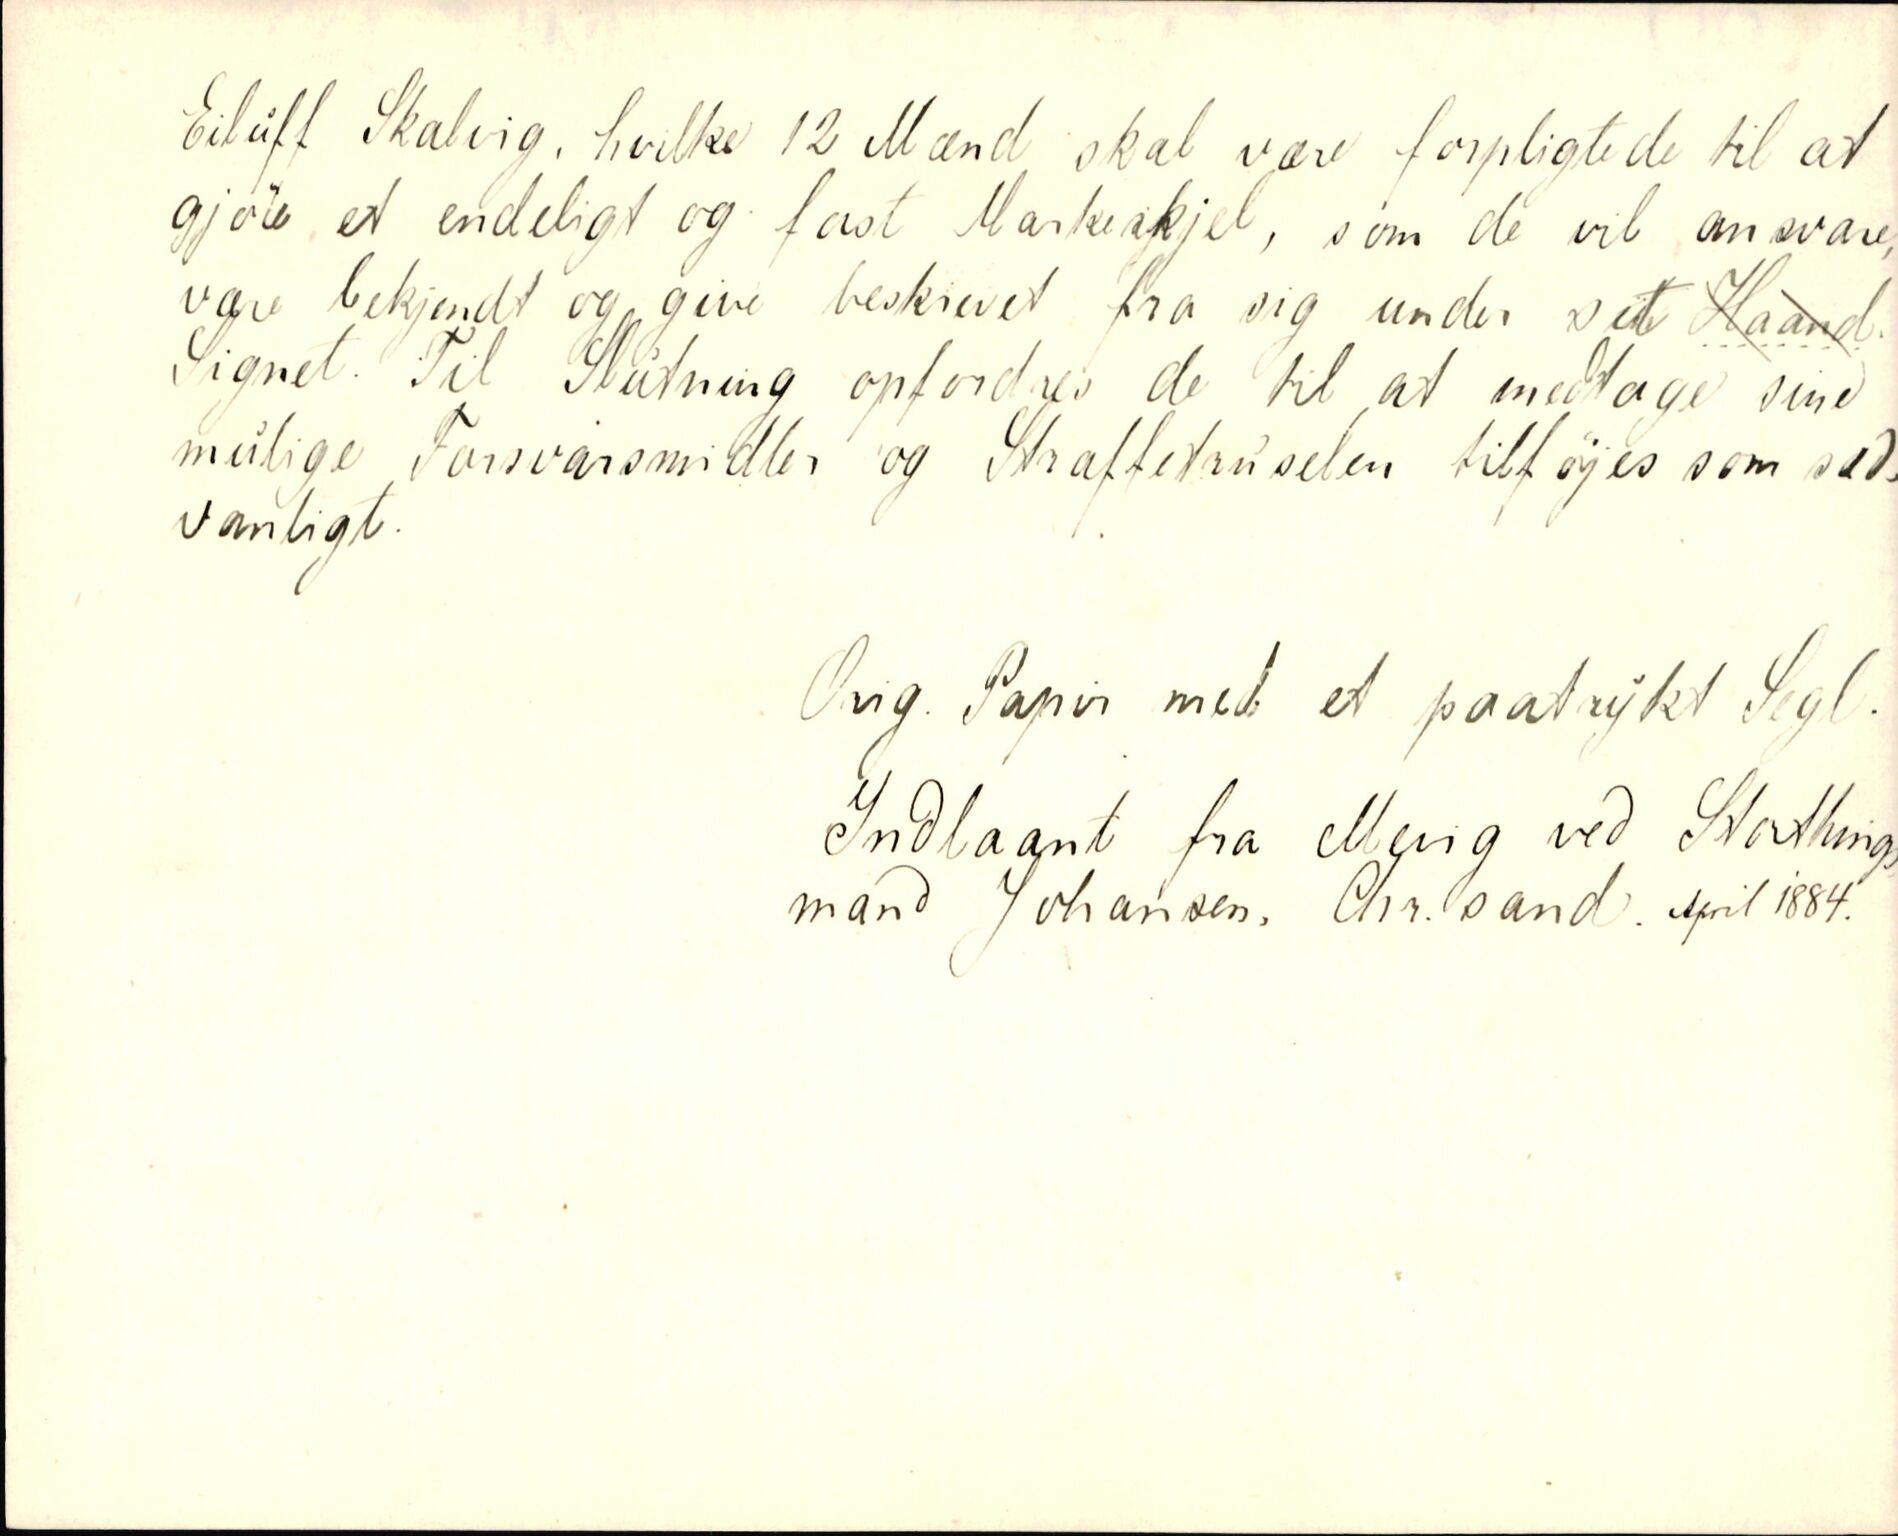 Eiluff Skalvig, hvilke 12 Mænd skal være forpligtede til at
gjöre et endeligt og fast Markeskjel, som de vil ansvare,
være bekjendt og give beskrevet fra sig under sit Haand.
Signet. Til Slutning opfordres de til at medtage sine
mulige Forsvarsmidler og Straffetruselen tilföjes som sæd-
vanligt.
Orig. Papir med et paatrykt Segl.
Indlaant fra Mevig ved Storthings
mand Johansen, Chr.sand. April 1884.